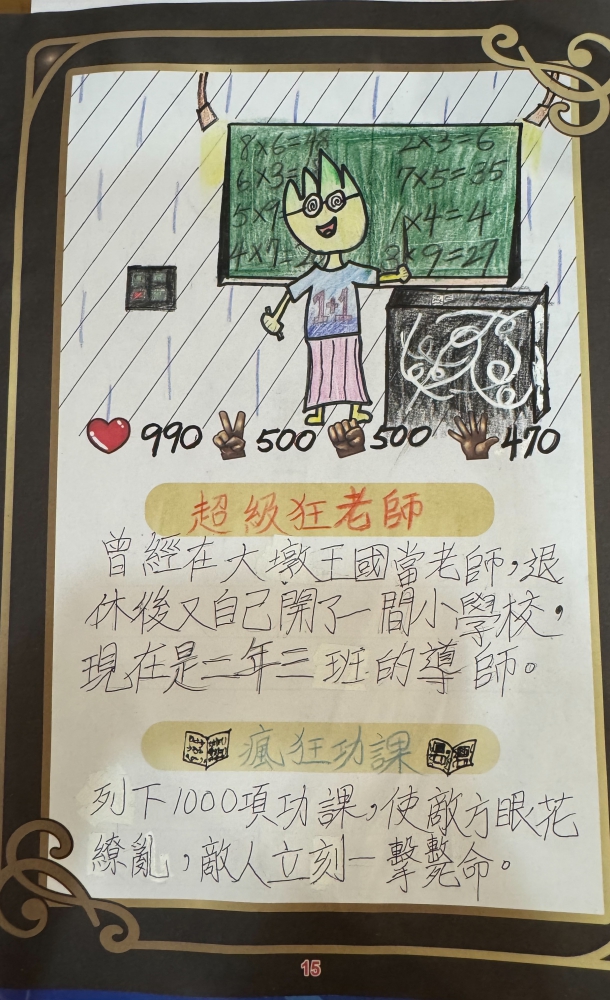 8×6=48
2×3=6
6×3=
7×5=35
5×9
1×4=4
4×7=2
3×9=27
1+1
990 500 500 470
超級狂老師
曾經在大墩王國當老師，退
休後又自己開了一間小學校，
現在是二年三班的導師。
瘋狂功課
列下1000項功課，使敵方眼花
繚亂，敵人立刻一擊斃命。
15